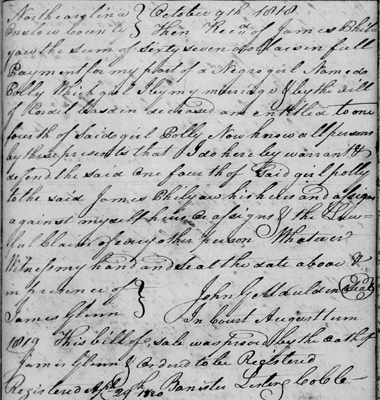 North carolina } October 9th 1818.
Onslow County } Then Recd of James Philyaw
yaw the sum of sixty seven dollars in full
Payment for my part of a Negro girl Named
Polly Which girl I by my marriage & by the will
of deceased am entitled to one
fourth of said girl Polly Now know all persons
by these presents that I do hereby warrant &
defend the said one fourth of said girl polly
to the said James Philyaw his heirs and assigns
against myself heirs & assigns & the Law-
ful claim of every other person Whatever
Witness my hand and seal the date above
in presence of } John (Seal)
James Glenn } In Court August term
1819 This bill of sale was proved by the oath of
James Glenn & Ordered to be Registered
Registered 29th 1820 Banister Lester